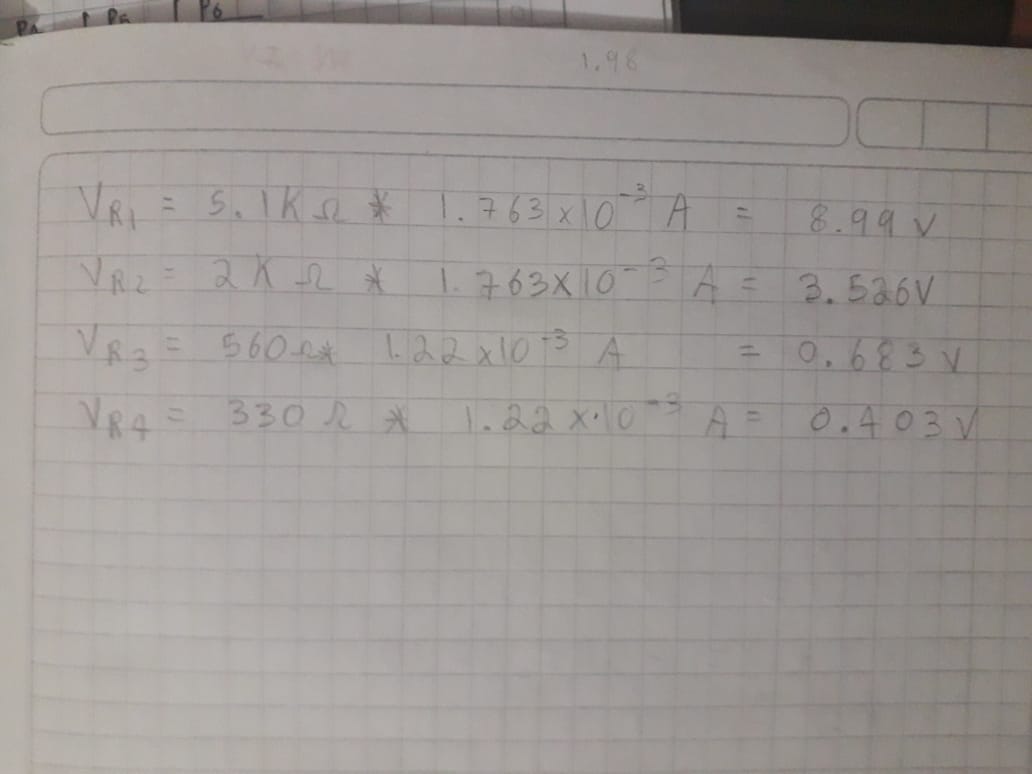 P5 P6
1.96
VR1 = 5.1K Ω * 1.763 x10⁻³ A = 8.99 V
VR2 = 2K Ω * 1.763X10⁻³ A = 3.526V
VR3 = 560Ω* 1.22x10⁻³ A = 0.683 V
VR4 = 330 Ω * 1.22 x·10⁻³ A = 0.403 V